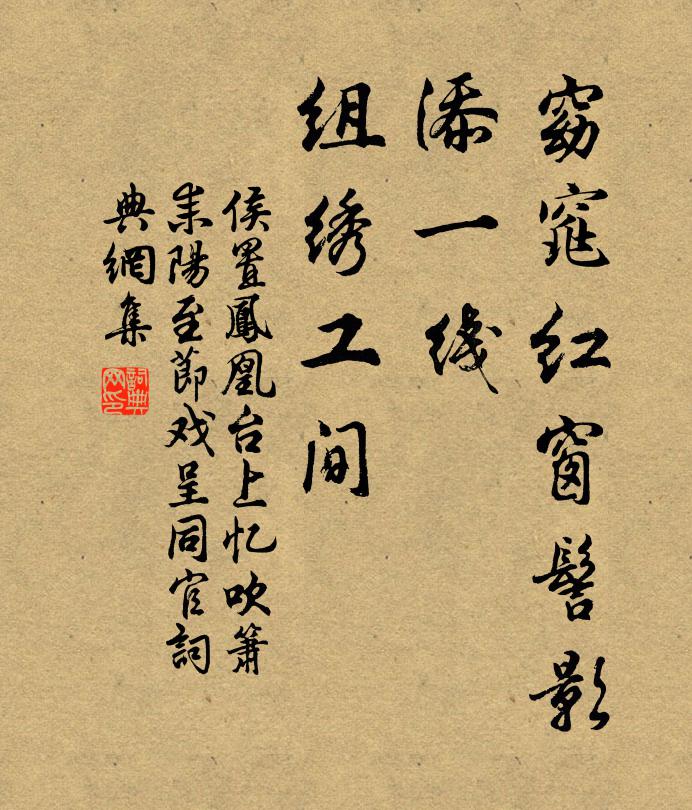 窈窕红窗髻影
添一线
组绣工间
侯置鳳凰台上忆吹箫
耒陽至節戏呈同官詞
典網集
詞典网印